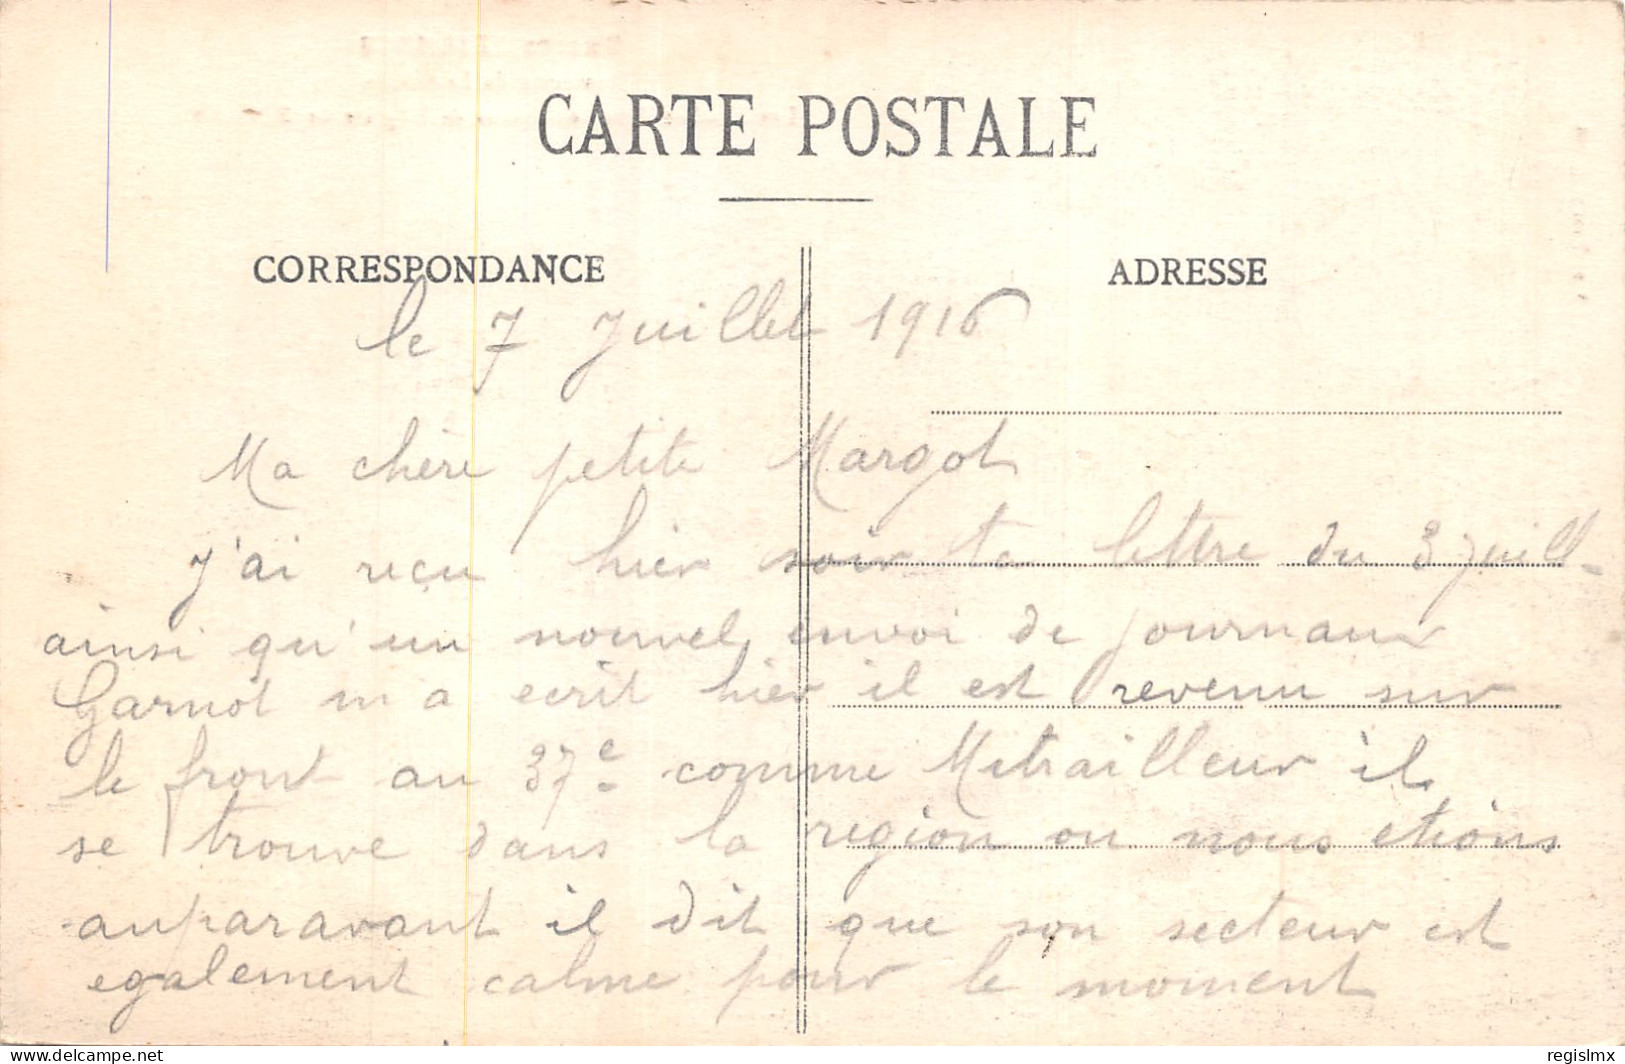 CARTE POSTALE
CORRESPONDANCE
ADRESSE
le 7 Juillet 1916
Ma chère petite Margot
J'ai reçu hier soir ta lettre du 3 juill-
ainsi qu'un nouvel envoi de journaux
Garnot m a ecrit hier il est revenu sur
le front au 37e comme Mitrailleur il
se trouve dans la region ou nous etions
auparavant il dit que son secteur est
egalement calme pour le moment
www.delcampe.net
regislmx